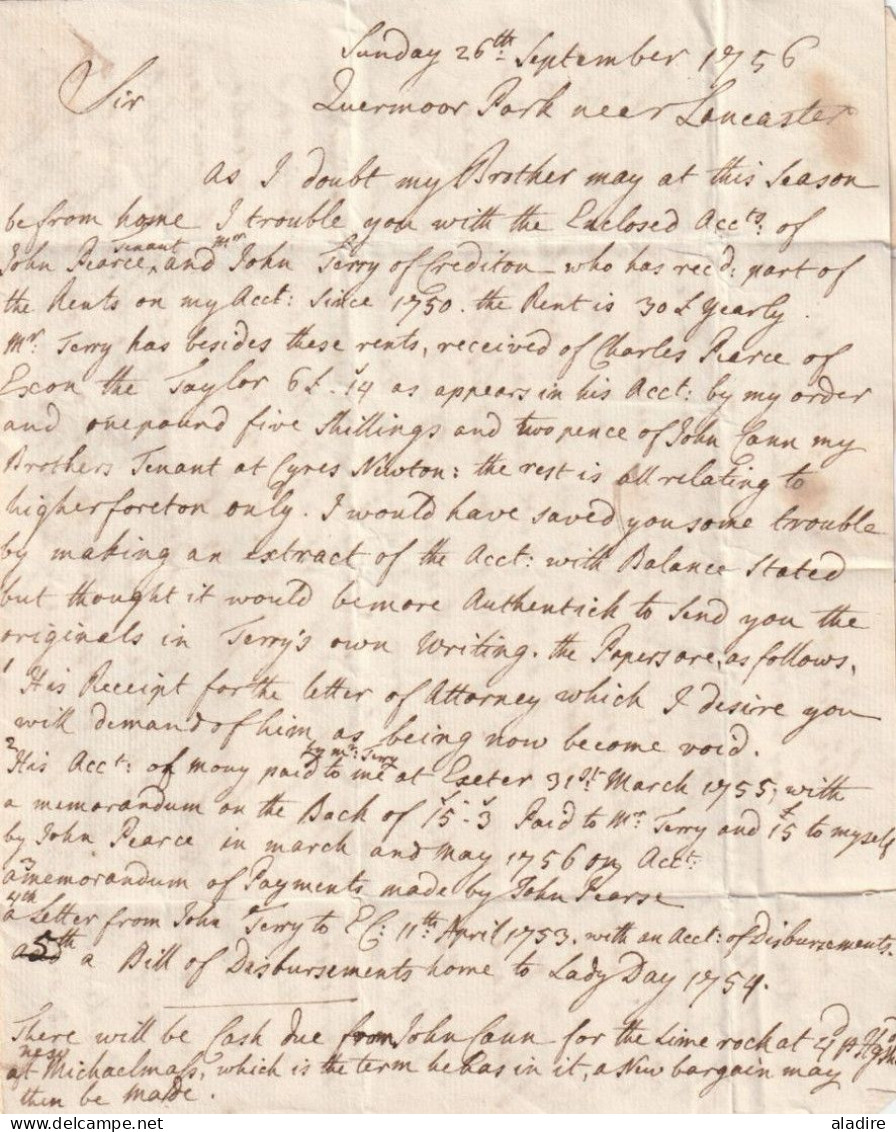 Sunday 26th September 1756
Sir Quermoor Park near Lancaster
As I doubt my Brother may at this Season
be from home I trouble you with the Enclosed Accts: of
John Pearce Tenant and Mr John Terry of Crediton who has recd: part of
the Rents on my Acct: Since 1750. the Rent is 30£ yearly.
Mr: Terry has besides these rents, received of Charles Pearce of
Exon the Taylor 6£-14s as appears in his Acct: by my order
and one pound five Shillings and two pence of John Cann my
Brothers Tenant at Cyres Newton: the rest is all relating to
higher foreton only. I would have saved you some trouble
by making an extract of the Acct: with Balance Stated
but thought it would be more Authentick to Send you the
originals in Terry's own Writing. the Papers are, as follows,
1 His Receipt for the letter of Attorney which I desire you
will demand of him, as being now become void.
2 His Acct: of mony paid by Mr: Terry to me at Exeter 31st March 1755, with
a memorandum on the Back of 15£-3s Paid to Mr: Terry and 15£ to myself
by John Pearce in march and May 1756 on Acct:
3 a memorandum of Payments made by John Pearse
4th a Letter from John Terry to EC: 11th: April 1753. with an Acct: of Disbursements.
5th a Bill of Disbursements home to Lady Day 1754.
There will be Cash due from John Cann for the Lime rock at 4d p
at next Michaelmass, which is the term he has in it, a New bargain may
then be made.
aladire